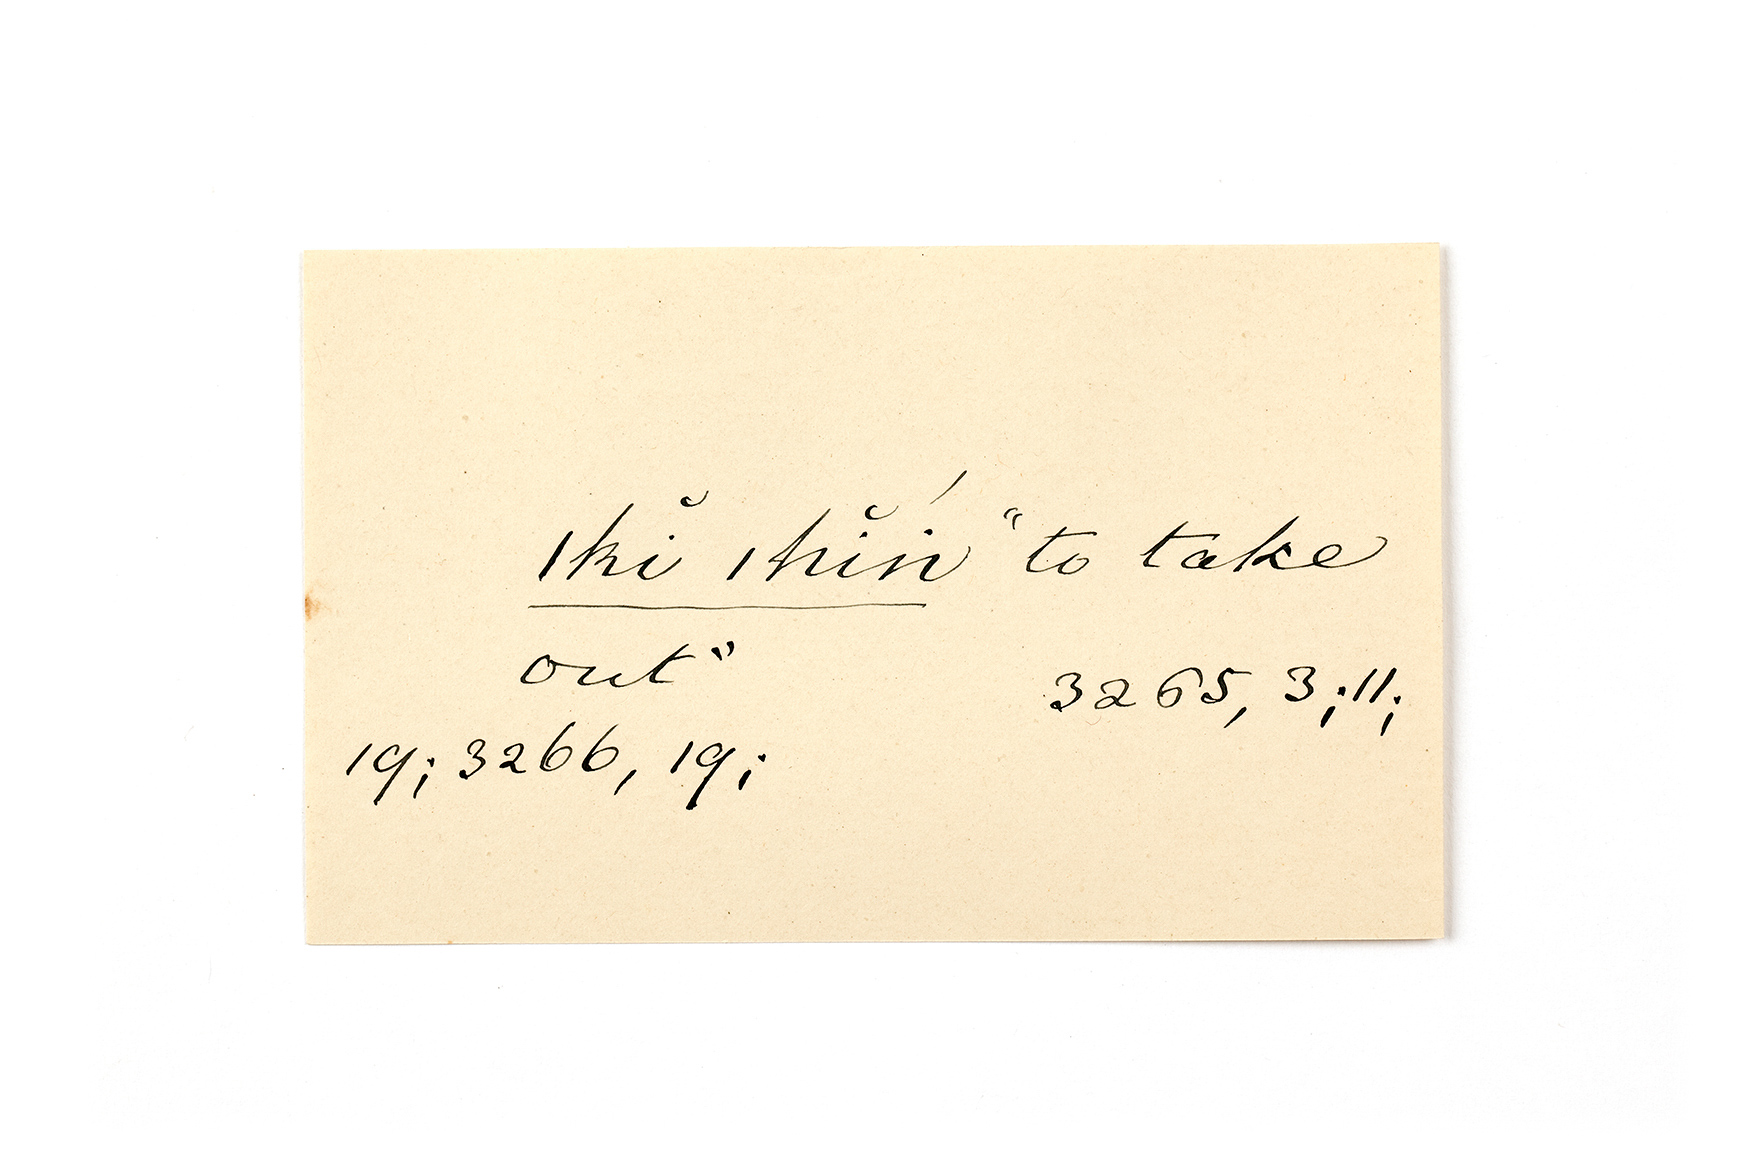 |hĭ |hĭń “to take
out”
3265, 3; 11;
19; 3266, 19;